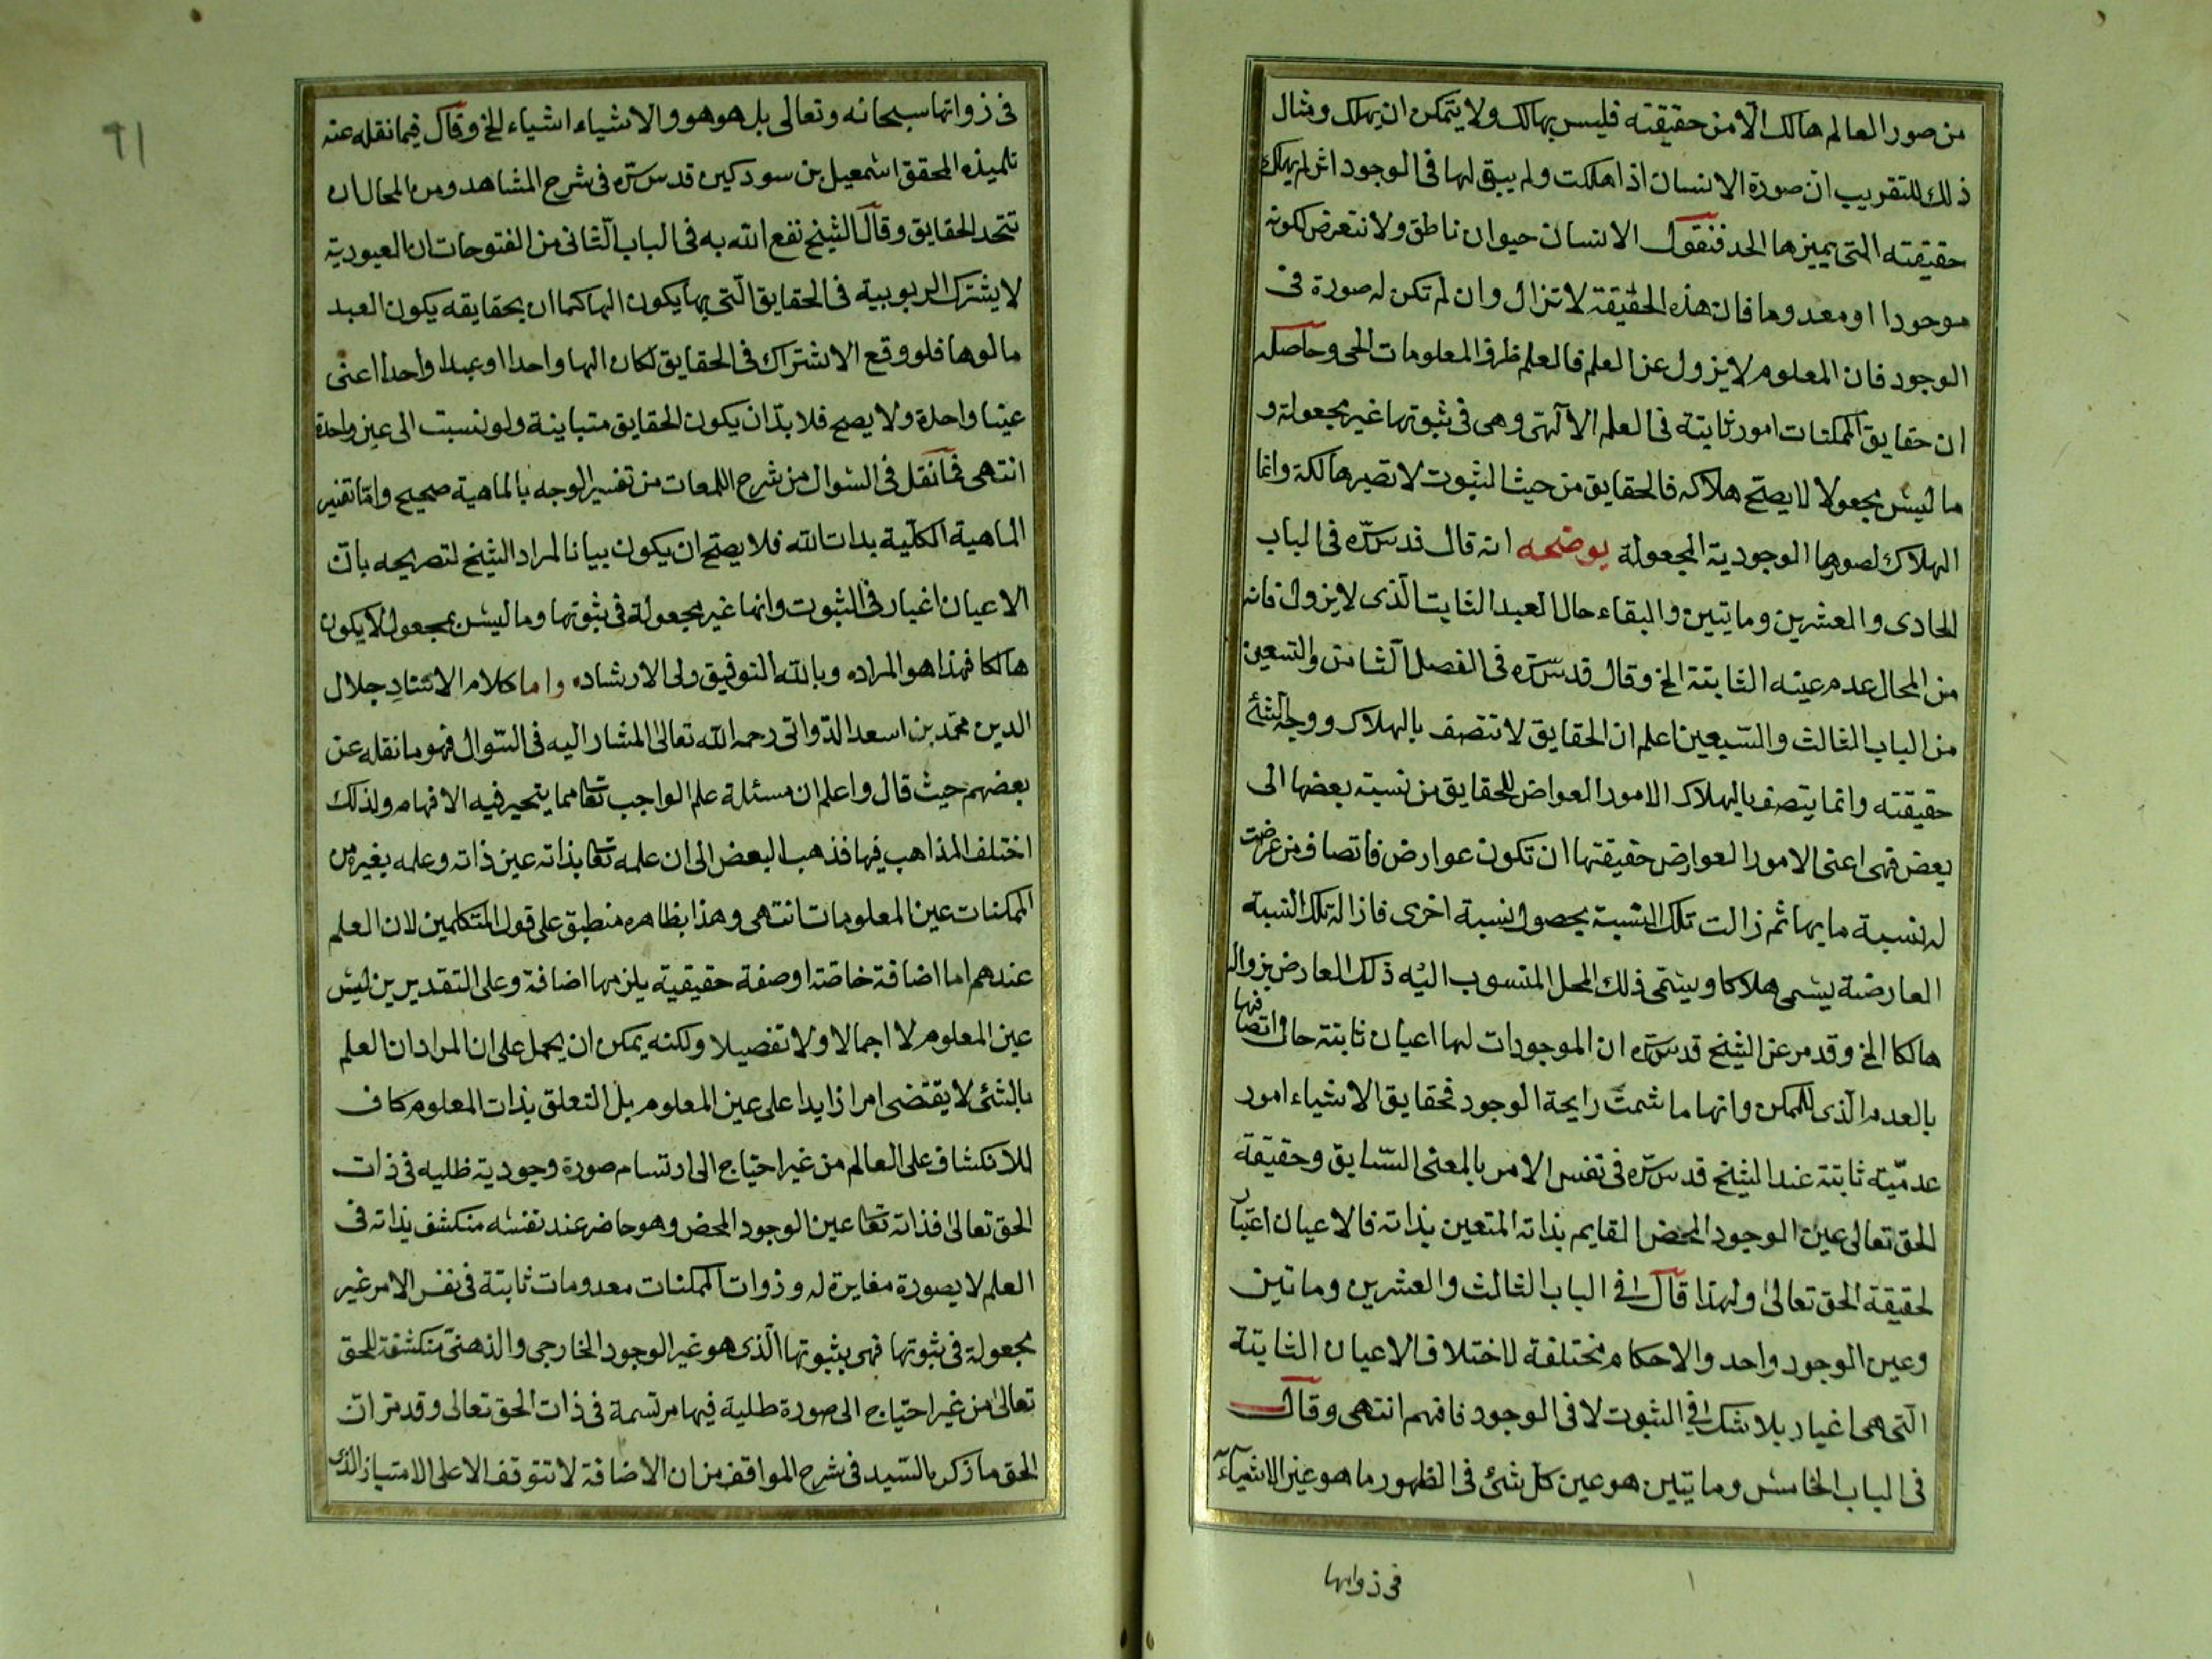 من صور العالم هالك الا من حقيقته فليس بهالك ولا يتمكن ان يهلك ومثال
ذلك للتقريب ان صورة الانسان اذا هلكت ولم يبق لها في الوجود اثر لم يهلك
حقيقته التى يميزها الحد فنقول الانسان حيوان ناطق ولا نتعرض لكونه
موجودا او معدوما فان هذه الحقيقة لا تزال وان لم تكن له صورة فى
الوجود فان المعلوم لا يزول عن العلم فالعلم ظرف المعلومات الخ وحاصله
ان حقايق الممكنات امور ثابتة فى العلم الالهى وهى فى ثبوتها غير مجعولة و
ما ليس مجعولا لا يصح هلاكه فالحقايق من حيث الثبوت لا تصير هالكة وانما
الهلاك لصورها الوجودية المجعولة يوضحه انه قال قدس سره فى الباب
الحادى والعشرين وماتيين والبقاء حال العبد الثابت الذى لا يزول فانه
من المحال عدم عينه الثابتة الخ وقال قدس سره فى الفصل الثامن والتسعين
من الباب الثالث والسبعين اعلم ان الحقايق لا تتصف بالهلاك ووجه الشئ
حقيقته وانما يتصف بالهلاك الامور العوارض للحقايق من نسبة بعضها الى
بعض فهى اعنى الامور العوارض حقيقتها ان تكون عوارض فاتصاف من عرضت
له نسبة ما بها ثم زالت تلك النسبة بحصول نسبة اخرى فازالة تلك النسبة
العارضة يسمى هلاكا ويسمى ذلك المحل المنسوب اليه ذلك العارض بزواله
هالكا الخ وقد مر عن الشيخ قدس سره ان الموجودات لها اعيان ثابتة حال اتصافها
بالعدم الذى للممكن وانها ما شمت رايحة الوجود فحقايق الاشياء امور
عدمية ثابتة عند الشيخ قدس سره فى نفس الامر بالمعنى السابق وحقيقة
الحق تعالى عين الوجود المحض القايم بذاته المتعين بذاته فالاعيان اغيار
لحقيقة الحق تعالى ولهذا قال فى الباب الثالث والعشرين وماتين
وعين الوجود واحد والاحكام مختلفة لاختلاف الاعيان الثابتة
التى هى اغيار بلا شك فى الثبوت لا فى الوجود فافهم انتهى وقال
فى الباب الخامس وماتيين هو عين كل شئ فى الظهور ما هو عين الاشياء
فى ذواتها
٩١
فى ذواتها سبحانه وتعالى بل هو هو والاشياء اشياء الخ وقال فيما نقله عنه
تلميذه المحقق اسمعيل بن سودكين قدس سره فى شرح المشاهد ومن المحال ان
تتحد الحقايق وقال الشيخ نفع الله به فى الباب الثانى من الفتوحات ان العبودية
لا يشترك الربوبية فى الحقايق التى بها يكون الها كما ان بحقايقه يكون العبد
مالوها فلو وقع الاشتراك فى الحقايق لكان الها واحدا او عبدا واحدا اعنى
عينا واحدة ولا يصح فلا بد ان يكون الحقايق متباينة ولو نسبت الى عين واحدة
انتهى فما نقل فى السوال من شرح اللمعات من تفسير الوجه بالماهية صحيح واما تفسير
الماهية الكلية بذات الله فلا يصح ان يكون بيانا لمراد الشيخ لتصريحه بان
الاعيان اغيار فى الثبوت وانها غير مجعولة فى ثبوتها وما ليس بمجعول لا يكون
هالكا فهذا هو المراد وبالله التوفيق ولى الارشاد واما كلام الاستاد جلال
الدين محمد بن اسعد الدوانى رحمه الله تعالى المشار اليه فى السوال فهو ما نقله عن
بعضهم حيث قال واعلم ان مسئلة علم الواجب تعا مما يتحير فيه الافهام ولذلك
اختلف المذاهب فيها فذهب البعض الى ان علمه تعا بذاته عين ذاته وعلمه بغيره من
الممكنات عين المعلومات انتهى وهذا بظاهره منطبق على قول المتكلمين لان العلم
عندهم اما اضافة خاصة او صفة حقيقية يلزمها اضافة وعلى التقديرين ليس
عين المعلوم لا اجمالا ولا تفصيلا ولكنه يمكن ان يحمل على ان المراد ان العلم
بالشئ لا يقتضى امرا زايدا على عين المعلوم بل التعلق بذات المعلوم كاف
للانكشاف على العالم من غير احتياج الى ارتسام صورة وجودية ظليه فى ذات
الحق تعالى فذاته تعا عين الوجود المحض وهو حاضر عند نفسه منكشف بذاته فى
العلم لا بصورة مغايرة له وذوات الممكنات معدومات ثابتة فى نفس الامر غير
مجعولة فى ثبوتها فهى بثبوتها الذى هو غير الوجود الخارجى والذهنى منكشفة للحق
تعالى من غير احتياج الى صورة ظلية فيها مرتسمة فى ذات الحق تعالى وقد مر ان
الحق ما ذكره السيد فى شرح المواقف من ان الاضافة لا تتوقف الا على الامتياز الذى